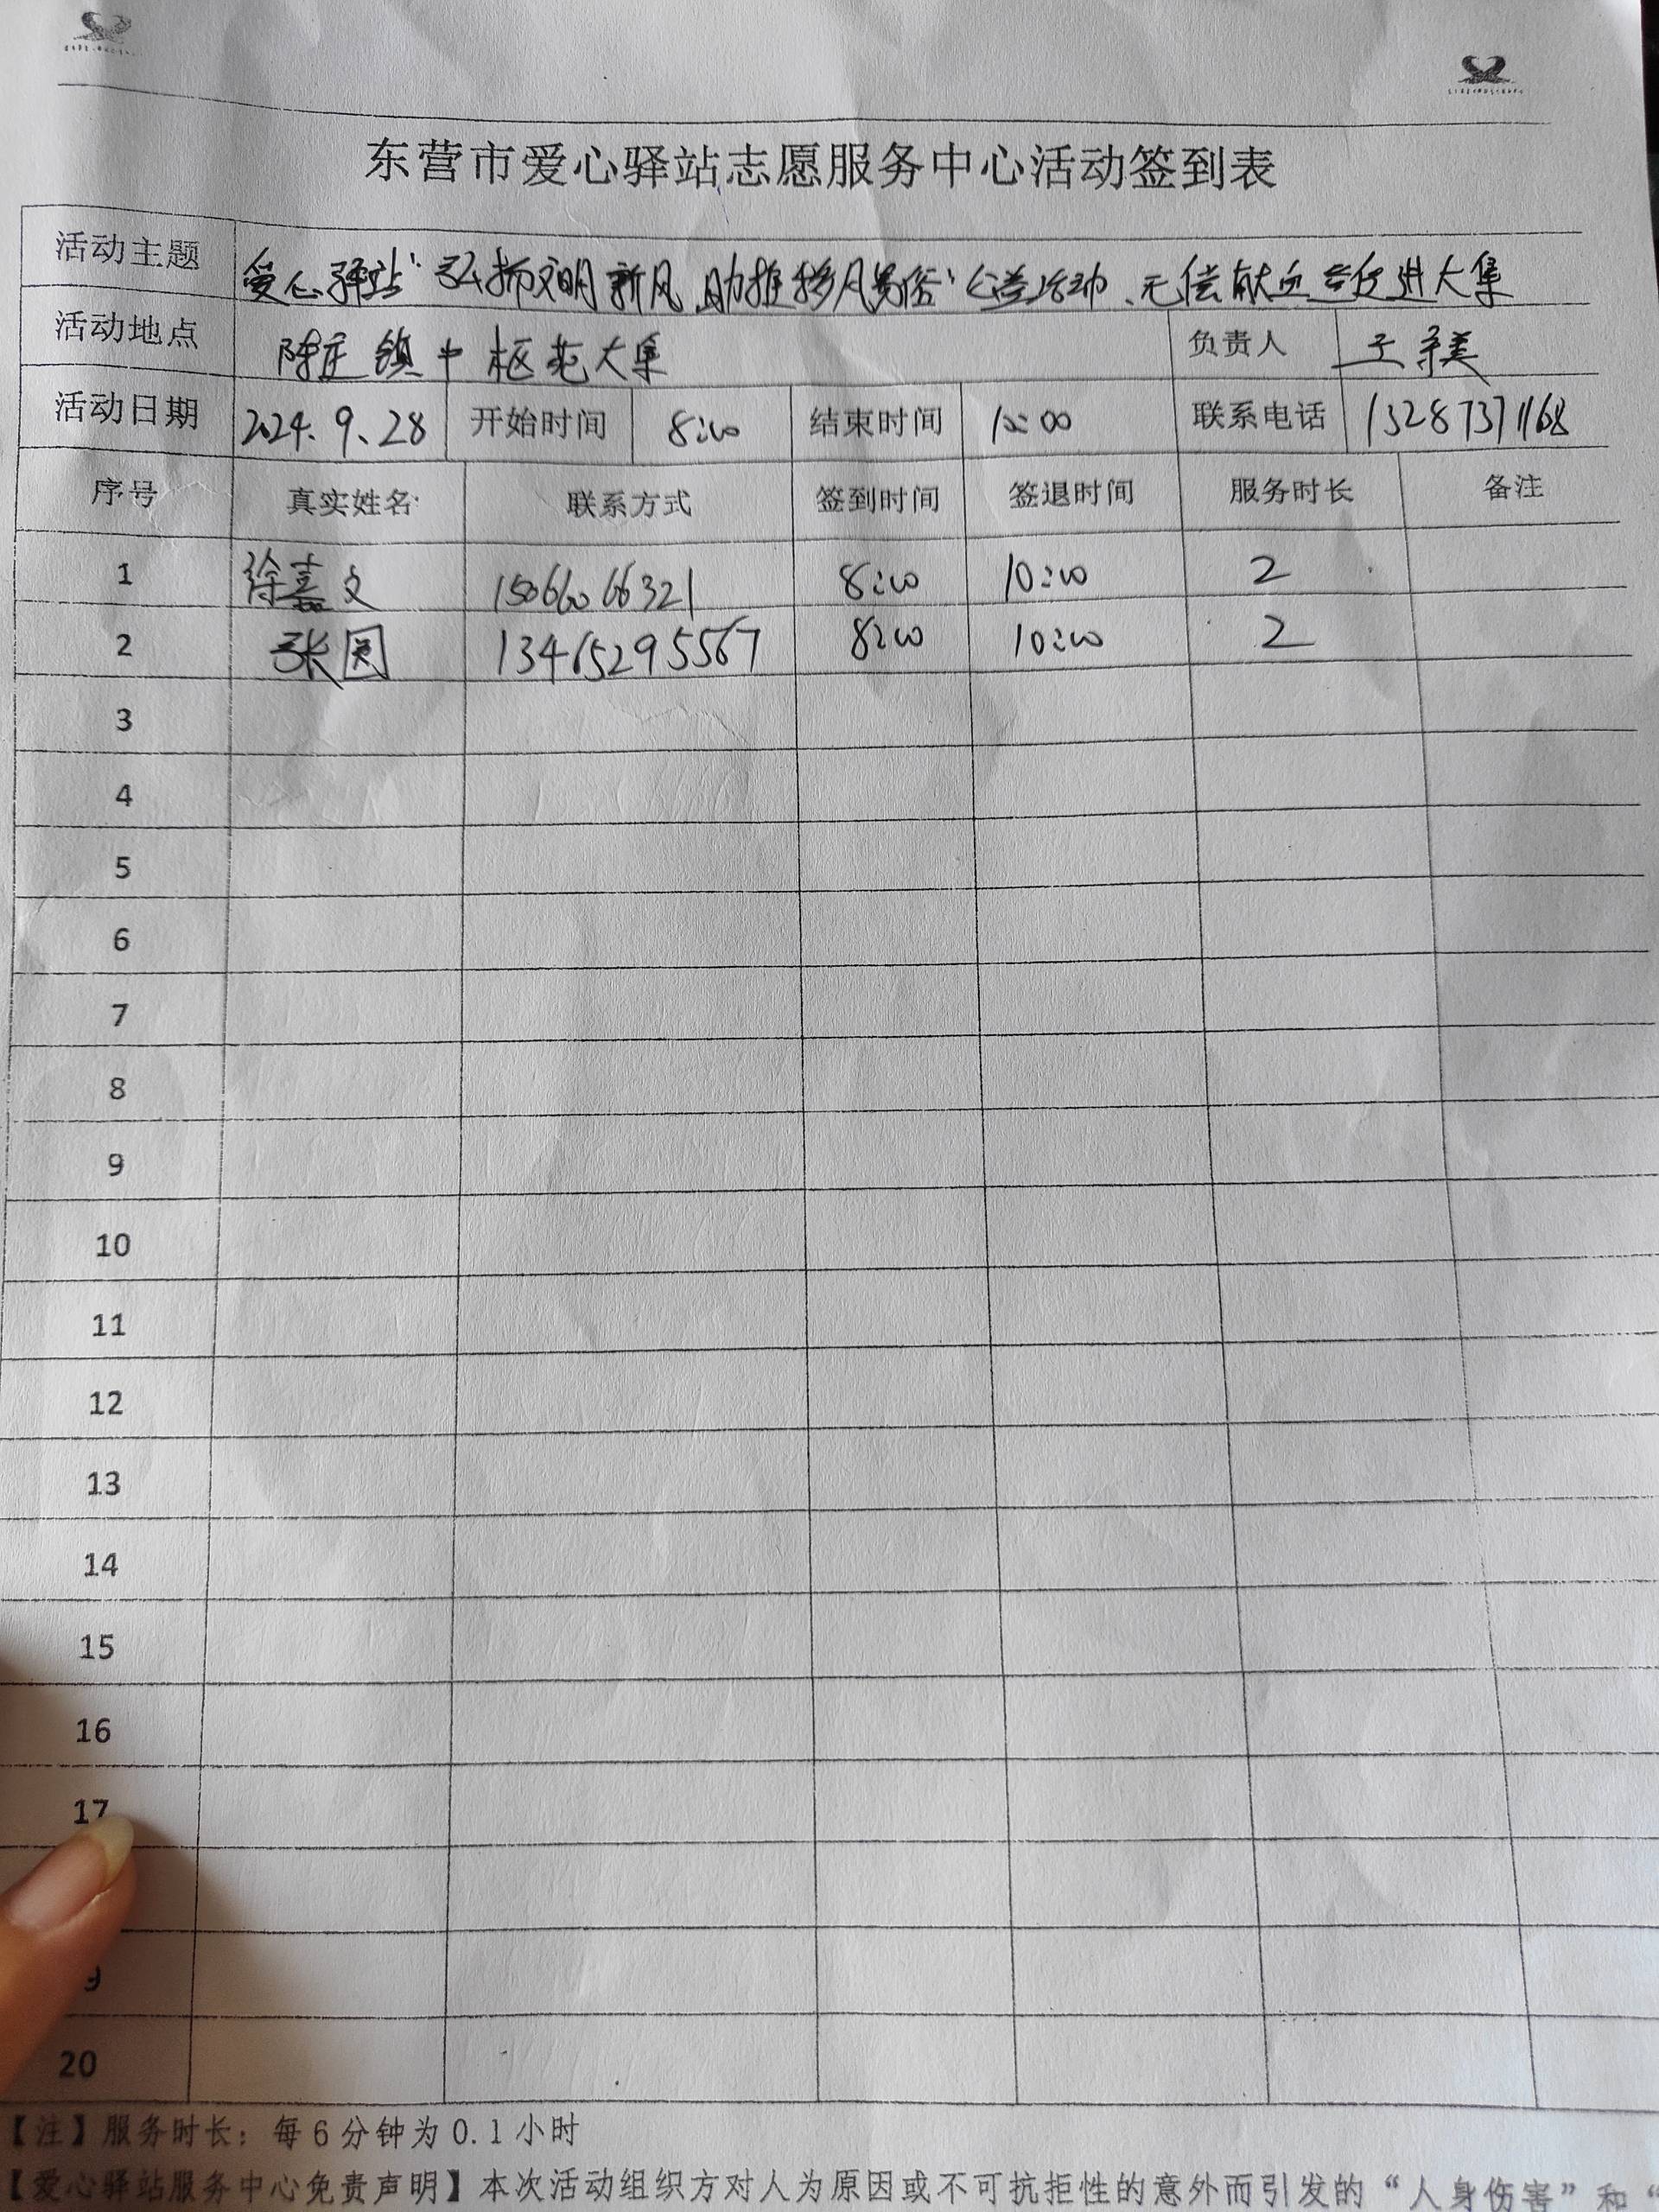 东营市爱心驿站志愿服务中心活动签到表
活动主题 爱心驿站“弘扬文明新风,助推移风易俗”公益活动、无偿献血宣传进大集
活动地点 陈庄镇中枢苑大集 负责人 王美
活动日期 2024.9.28 开始时间 8:00 结束时间 10:00 联系电话 13287371168
序号 真实姓名 联系方式 签到时间 签退时间 服务时长 备注
1 徐嘉文 15066066321 8:00 10:00 2
2 张圆 13465295567 8:00 10:00 2
3
4
5
6
7
8
9
10
11
12
13
14
15
16
17
9
20
【注】服务时长:每6分钟为0.1小时
【爱心驿站服务中心免责声明】本次活动组织方对人为原因或不可抗拒性的意外而引发的“人身伤害”和“